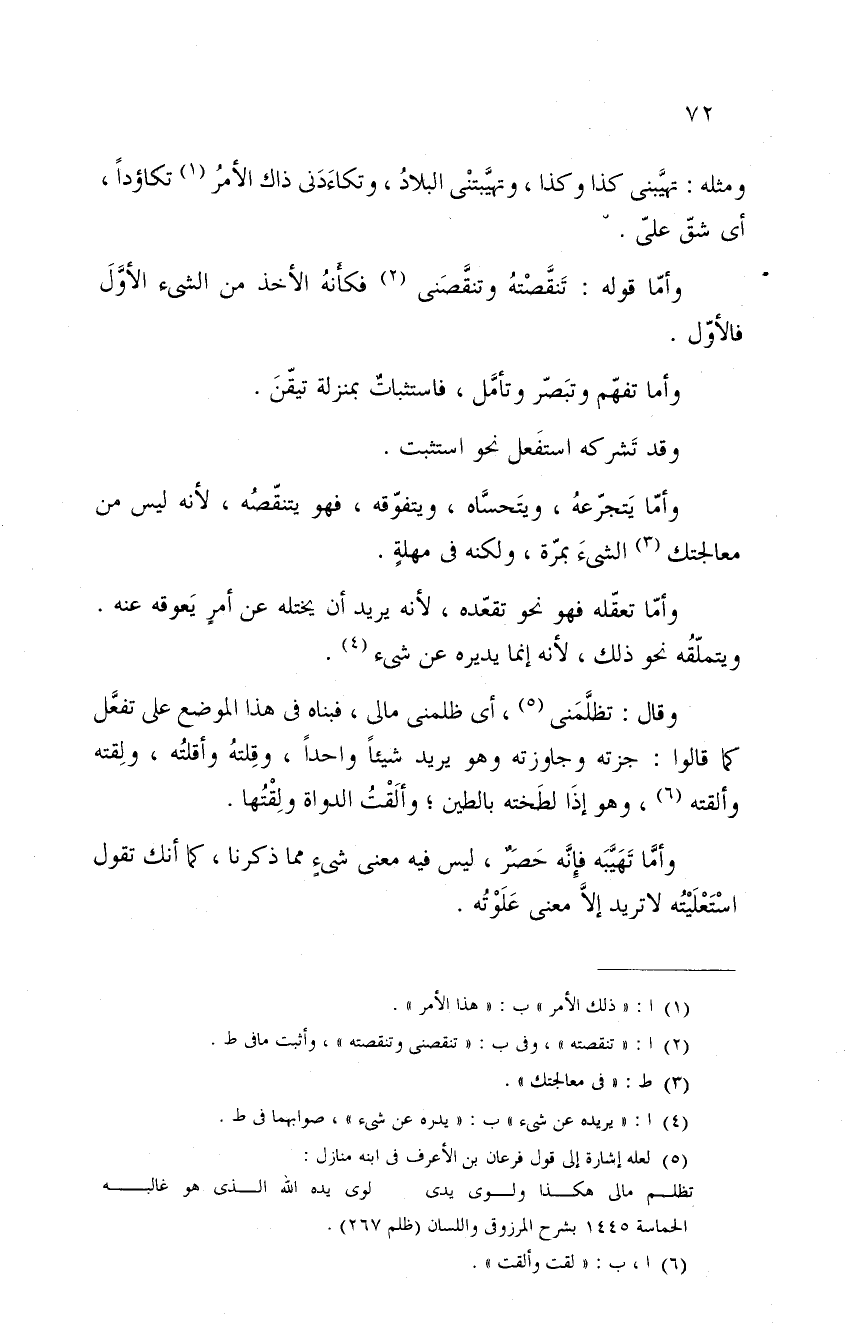 ٧٢
ومثله : تهيَّبنى كذا وكذا ، وتهيَّبتنْى البلادُ ، وتكاءَدَنى ذاك الأمرُ (١) تكاؤداً ،
أى شقّ علىّ .
وأمّا قوله : تَنقَّصْتهُ وتنقَّصَنى (٢) فكأنهُ الأخذ من الشىء الأوَّلَ
فالأوّل .
وأما تفهّم وتبَصّر وتأمَّل ، فاستثباتٌ بمنزلة تيقّنَ .
وقد تَشركه استفَعل نحو استثبت .
وأمّا يَتجرّعهُ ، ويتَحسَّاه ، ويتفوّقه ، فهو يتنقّصُه ، لأنه ليس من
معالجتك (٣) الشىءَ بمرّة ، ولكنه فى مهلةٍ .
وأمّا تعقّله فهو نحو تقعّده ، لأنه يريد أن يختله عن أمرٍ يَعوقه عنه .
ويتملّقُه نحو ذلك ، لأنه إنما يديره عن شىء (٤) .
وقال : تظلَّمَنى (٥) ، أى ظلمنى مالى ، فبناه فى هذا الموضع على تفعَّل
كما قالوا : جزته وجاوزته وهو يريد شيئاً واحداً ، وقِلتهُ وأقلتُه ، ولِقته
وألقته (٦) ، وهو إذَا لطَخته بالطين ؛ وألَقْتُ الدواة ولِقْتُها .
وأمَّا تَهَيَّبَه فإنَّه حَصَرٌ ، ليس فيه معنى شىءٍ مما ذكرنا ، كما أنك تقول
اسْتَعْلَيْتُه لاتريد إلاَّ معنى عَلَوْتُه .
(١) ا : « ذلك الأمر » ب : « هذا الأمر » .
(٢) ا : « تنقصته » ، وفى ب : « تنقصنى وتنقصته » ، وأثبت مافى ط .
(٣) ط : « فى معالجتك » .
(٤) ا : « يريده عن شىء » ب : « يدره عن شىء » ، صوابهما فى ط .
(٥) لعله إشارة إلى قول فرعان بن الأعرف فى ابنه منازل :
تظلـم مالى هكـذا ولـوى يدى لوى يده الله الـذى هو غالبـه
الحماسة ١٤٤٥ بشرح المرزوقى واللسان (ظلم ٢٦٧) .
(٦) ا ، ب : « لقت وألقت » .